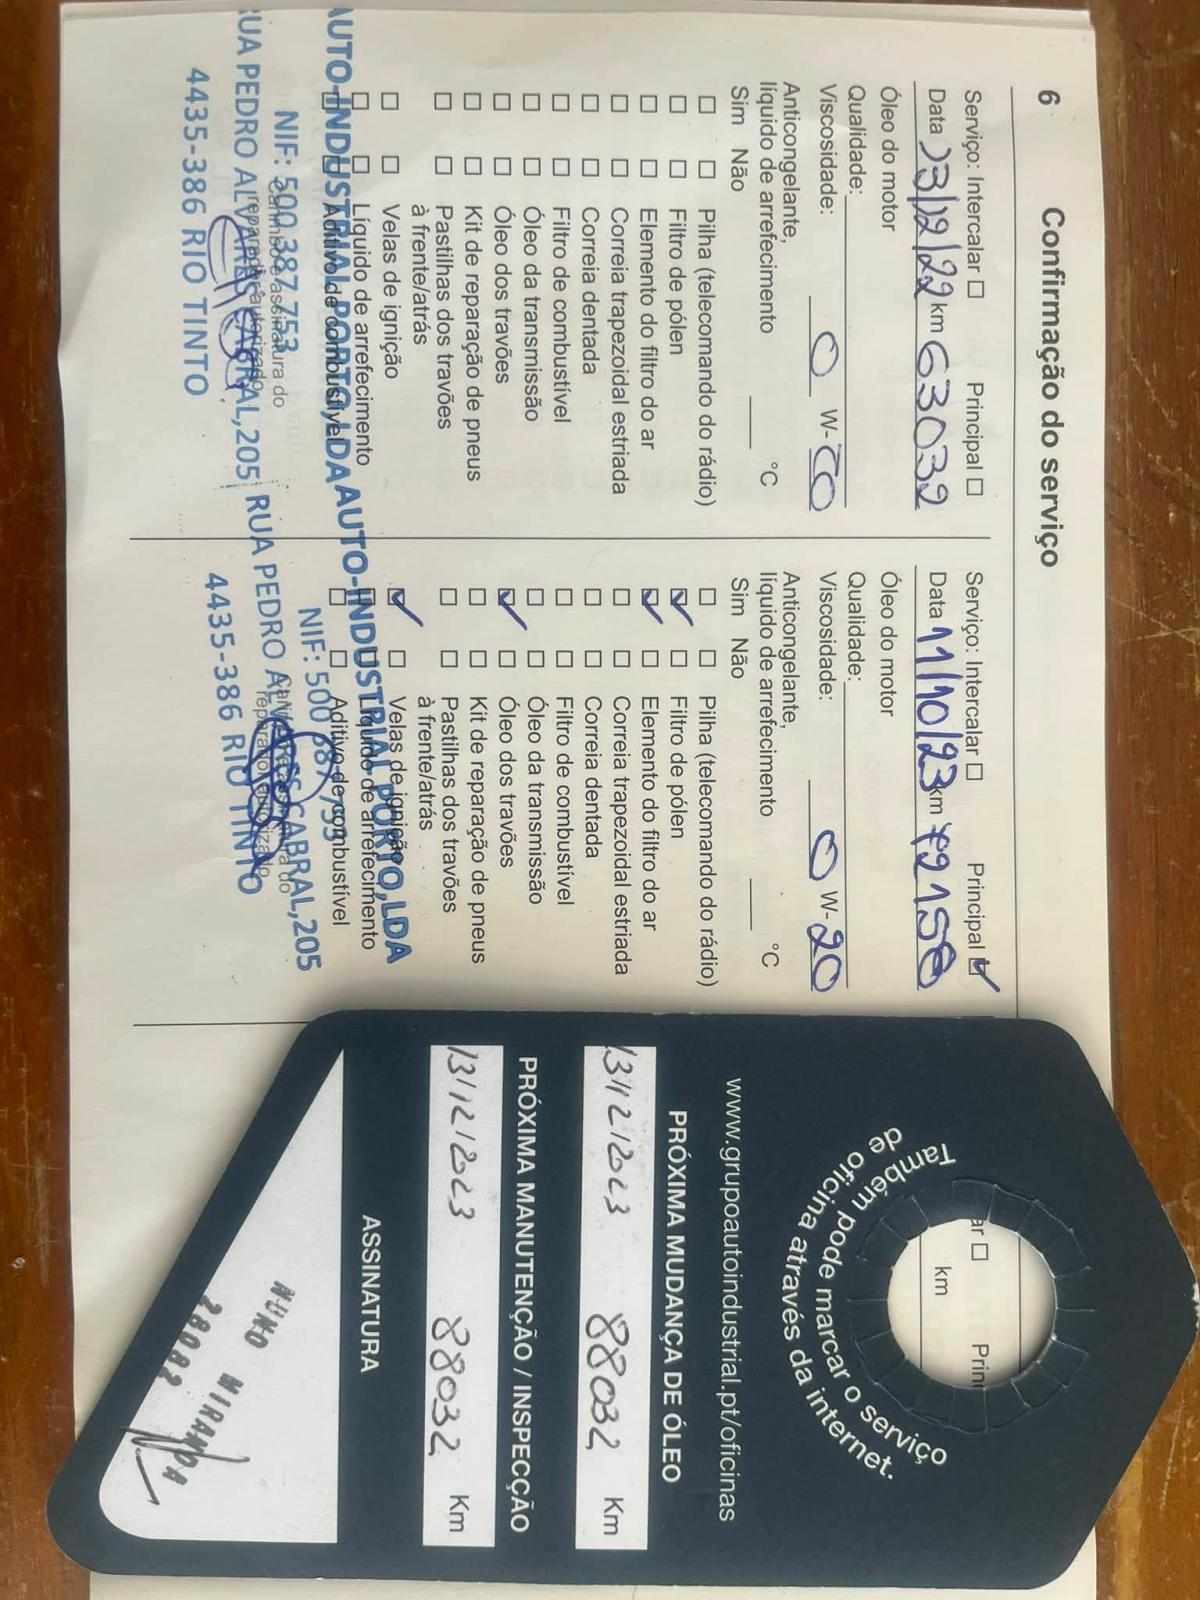 6 Confirmação do serviço
Serviço: Intercalar ☐ Principal ☐
Data 13/12/22 km 63032
Óleo do motor
Qualidade:
Viscosidade: 0 W-20
Anticongelante,
líquido de arrefecimento °C
Sim Não
☐ ☐ Pilha (telecomando do rádio)
☐ ☐ Filtro de pólen
☐ ☐ Elemento do filtro do ar
☐ ☐ Correia trapezoidal estriada
☐ ☐ Correia dentada
☐ ☐ Filtro de combustível
☐ ☐ Óleo da transmissão
☐ ☐ Óleo dos travões
☐ ☐ Kit de reparação de pneus
☐ ☐ Pastilhas dos travões
à frente/atrás
☐ ☐ Velas de ignição
☐ ☐ Líquido de arrefecimento
☐ ☐ Aditivo de combustível
AUTO-INDUSTRIAL PORTO,LDA
NIF: 500 387 753
Carimbo e assinatura do
reparador autorizado
RUA PEDRO ALVARES CABRAL,205
4435-386 RIO TINTO
Serviço: Intercalar ☐ Principal ☑
Data 11/10/23 km 79158
Óleo do motor
Qualidade:
Viscosidade: 0 W-20
Anticongelante,
líquido de arrefecimento °C
Sim Não
☐ ☐ Pilha (telecomando do rádio)
☑ ☐ Filtro de pólen
☑ ☐ Elemento do filtro do ar
☐ ☐ Correia trapezoidal estriada
☐ ☐ Correia dentada
☐ ☐ Filtro de combustível
☐ ☐ Óleo da transmissão
☑ ☐ Óleo dos travões
☐ ☐ Kit de reparação de pneus
☐ ☐ Pastilhas dos travões
à frente/atrás
☑ ☐ Velas de ignição
☐ ☐ Líquido de arrefecimento
☐ ☐ Aditivo de combustível
AUTO-INDUSTRIAL PORTO,LDA
NIF: 500 387 753
RUA PEDRO ALVARES CABRAL,205
4435-386 RIO TINTO
ar ☐ Prin
km
Também pode marcar o serviço
de oficina através da internet.
www.grupoautoindustrial.pt/oficinas
PRÓXIMA MUDANÇA DE ÓLEO
13/12/2023 88032 Km
PRÓXIMA MANUTENÇÃO / INSPECÇÃO
13/12/2023 88032 Km
ASSINATURA
NUNO MIRANDA